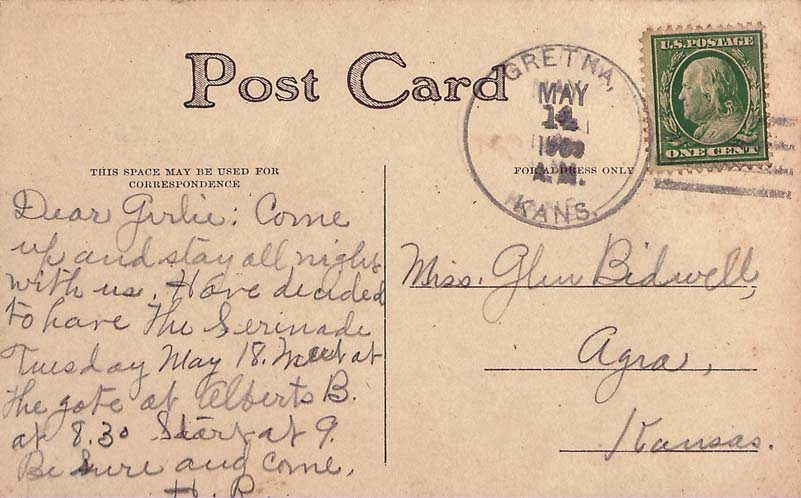 Post Card
U.S. POSTAGE
ONE CENT
GRETNA,
MAY
14
1909
A.M.
KANS.
THIS SPACE MAY BE USED FOR
CORRESPONDENCE
FOR ADDRESS ONLY
Dear Girlie: Come
up and stay all night
with us. Have decided
to have the Serinade
Tuesday May 18. Meet at
the gate at Alberts B.
at 8.30 Start at 9.
Be Sure and come,
H. B.
Miss. Glen Bidwell,
Agra,
Kansas.